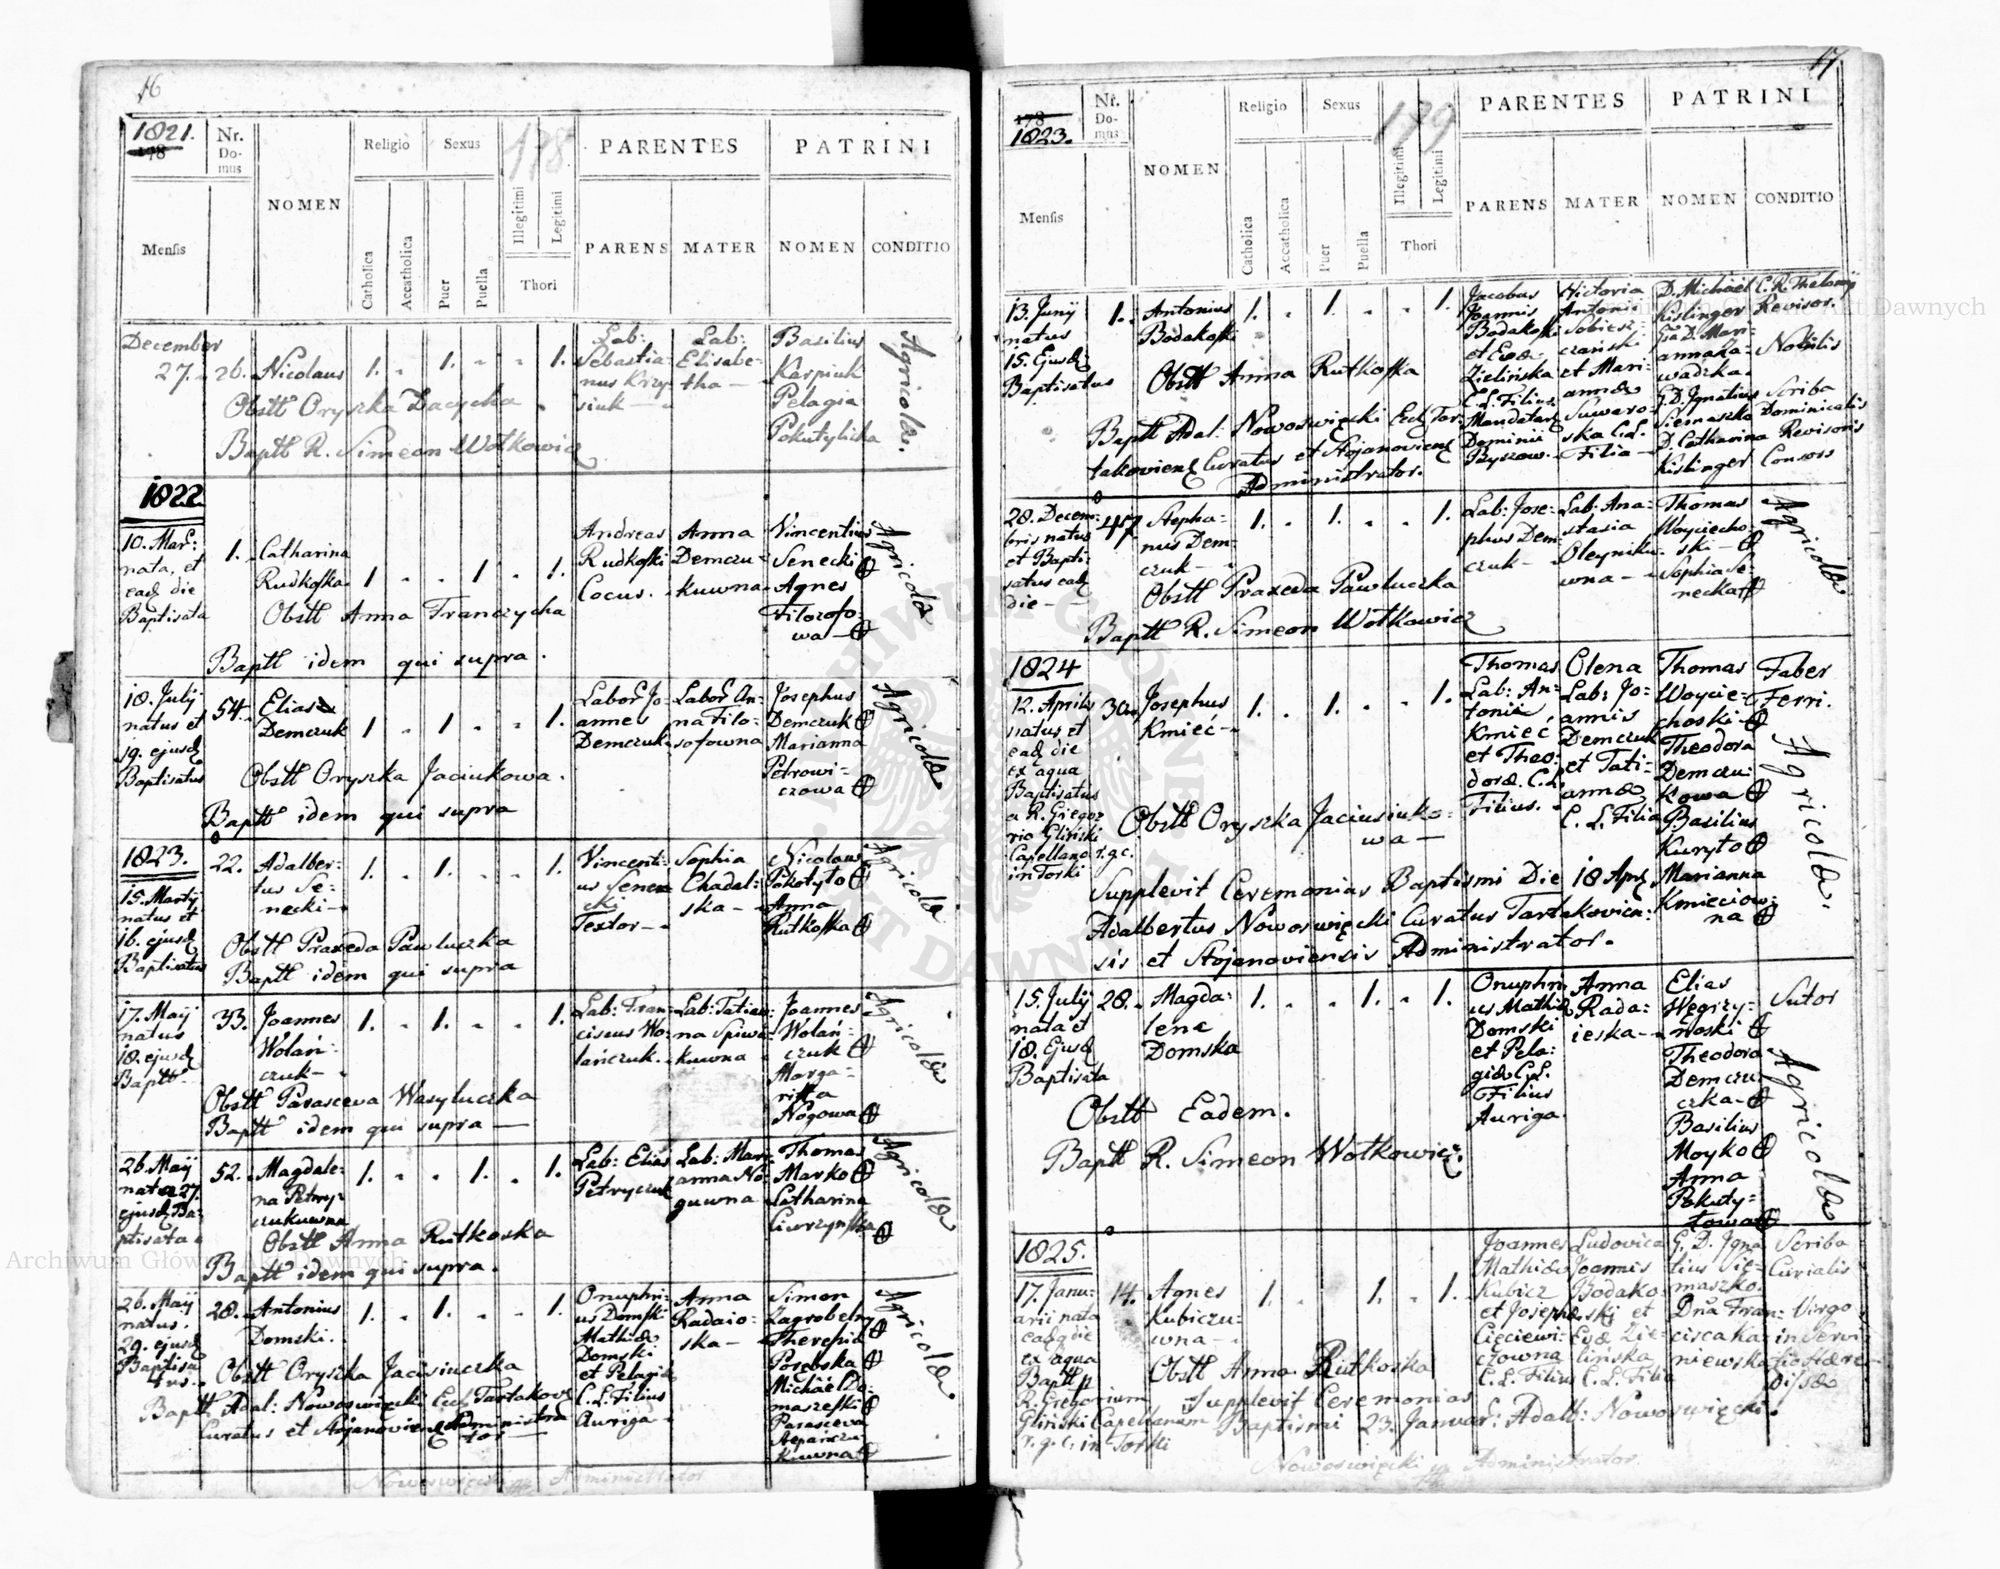 16
1821.
178
Nr. Domus
NOMEN
Religio
Sexus
178
PARENTES
PATRINI
Mensis
Catholica
Accatholica
Puer
Puella
Illegitimi
Legitimi
Thori
PARENS
MATER
NOMEN
CONDITIO
December 27.
26.
Nicolaus
1. 1. 1.
Lab: Sebastia=
nus
siuk
Lab:
Elisabe=
tha
Basilius
Karpiuk
Pelagia
Agricolae.
Obstt Oryszka Dacycha
Baptt R. Simeon Wotkowicz
1822
10. Mar:
nata, et
ead die
Baptisata
1.
Catharina
Rudkoska
1 1 1.
Andreas
Rudkoski
Cocus.
Anna
Demczu=
kuwna
Vincentius
Senecki
Agnes
Filozofo=
wa
Agricolae
Obstt Anna Franczycha
Baptt idem qui supra.
18. July
natus et
19. ejusd
Baptisatus
54.
Elias
Demczuk
1 1 1.
Labor Jo=
annes
Demczuk
Labor An=
na Filo=
sofowna
Josephus
Demczuk
Marianna
Petrowi=
czowa
Agricolae
Obstt Oryszka Jaciukowa.
Baptt idem qui supra
1823.
15. Martij
natus et
16. ejusd
Baptisatus
22.
Adalber=
tus Se=
necki
1. 1. 1.
Vincenti=
us Senec
ki
Textor
Sophia
Chadal=
ska
Nicolaus
Pokotyto
Anna
Rutkoska
Agricolae
Obstt Praxeda Pawluczka
Baptt idem qui supra
17. Maij
natus
18. ejusd
Baptt
33.
Joannes
Wolań=
czuk
1. 1. 1.
Lab: Fran=
ciscus Wo=
lańczuk.
Lab: Tatian=
na Spiwa=
kuwna
Joannes
Wolań=
czuk
Marga=
ritta
Nogowa
Agricolae
Obstt Parasceva Wasyluczka
Baptt idem qui supra
26. Maij
nata 27.
ejusd Ba=
ptisata
52.
Magdale=
na Petry=
czukuwna
1. 1. 1.
Lab: Elias
Petryczuk
Lab: Mari=
anna No=
guwna
Thomas
Marko
Catharina
Agricolae
Obstt Anna Rutkoska
Baptt idem qui supra.
26. Maij
natus.
29. ejusd
Baptisa
tus.
28.
Antonius
Domski.
1. 1. 1.
Onuphri=
us Domski
Mathiae
Domski
et Pelagiae
C. L. Filius
Auriga.
Anna
Radaio=
ska
Simon
Zagrobelny
Theresia
Porebska
Michael Do=
maszeski
Parasceva
Agricolae.
Obstt Oryszka Jacisiuczka
Baptt Adal: Nowoswięcki Eccl Tartakov
Curatus et Stojanoviens Administra
tor
Nowoswięcki Administrator
17
178
1823.
Nr. Domus
NOMEN
Religio
Sexus
179
PARENTES
PATRINI
Mensis
Catholica
Accatholica
Puer
Puella
Illegitimi
Legitimi
Thori
PARENS
MATER
NOMEN
CONDITIO
13. Junij
natus
15. Ejusd
Baptisatus
1.
Antonius
Bodakoski
1. 1. 1.
Jacobus
Joannis
Bodakoski
et Evae
Zielińska
C. L. Filius
Mandatar
Dominii
Victoria
Antonii
Sobiesz=
czański
et Mari=
annae
Suwaro=
ska C. L.
Filia
D. Michael
Kislinger
Gsa D. Mari=
anna Za=
wadzka.
G. D. Ignatius
Siemaszko
D. Catharina
Kislinger
Revisor.
Nobilis
Scriba
Dominicalis
Revisoris
Consors
Obstt Anna Rutkoska
Baptt Adal: Nowoswięcki Eccl Tar=
takoviens Curatus et Stojanoviens
Administrator.
28. Decem=
bris natus
et Bapti=
satus ead
die
47
Stepha=
nus Dem=
czuk
1. 1. 1.
Lab: Jose=
phus Dem
czuk
Lab: Ana=
stasia
Oleyniku=
wna
Thomas
Woyciecho=
ski
Sophia Se=
necka
Agricolae
Obstt Praxeda Pawluczka
Baptt R. Simeon Wotkowicz
1824
12. Aprilis
natus et
ead die
ex aqua
Baptisatus
a R. Grego=
rio Gliński
Capellano r.g.c.
in Torki
30.
Josephus
Kmieć
1. 1. 1.
Thomas
Lab: An=
tonii
Kmieć
et Theo=
dorae C. L.
Filius.
Olena
Lab: Jo=
annis
Demczuk
et Tati=
annae
C. L. Filia
Thomas
Woycie=
choski
Theodora
Demczu=
kowa
Basilius
Kuryto
Marianna
Kmieciow=
na
Faber
Ferri.
Agricolae.
Obstt Oryszka Jaciusiuko=
wa
Supplevit Ceremonias Baptismi Die 18 Apr
Adalbertus Nowoswięcki Curatus Tartakovien=
sis et Stojanoviensis Administrator.
15. July
nata et
18. Ejusd
Baptisata
28.
Magda=
lena
Domska
1. 1. 1.
Onuphri
us Mathiae
Domski
et Pela=
giae C. L.
Filius
Auriga
Anna
Rada=
ieska
Elias
Węgrzy=
noski
Theodora
Demczu
czka
Basilius
Moyko
Anna
Pokuty=
towa
Sutor
Agricolae
Obstt Eadem.
Baptt R. Simeon Wotkowicz.
1825.
17. Janu=
arii nata
eadq die
ex aqua
Baptt p
R. Gregorium
Gliński Capellanum
r. g. c. in Torki
14.
Agnes
Kubiczu=
wna
1. 1. 1.
Joannes
Mathiae
Kubicz
et Josephae
Cięciewi=
czowna
C. L. Filius
Ludovica
Joannis
Bodako=
ski et
Evae Zie=
lińska
C. L. Filia
G. D. Igna
tius Sie=
maszko.
Dna Fran=
cisca Ka=
niewska
Scriba
Curialis
Virgo
in Servi
tio Haere=
dissae
Obstt Anna Rutkoska
Supplevit Ceremonias
Baptismi 23. Januar: Adalb: Nowoswięcki.
Nowoswięcki Administrator.
Archiwum Główne Akt Dawnych